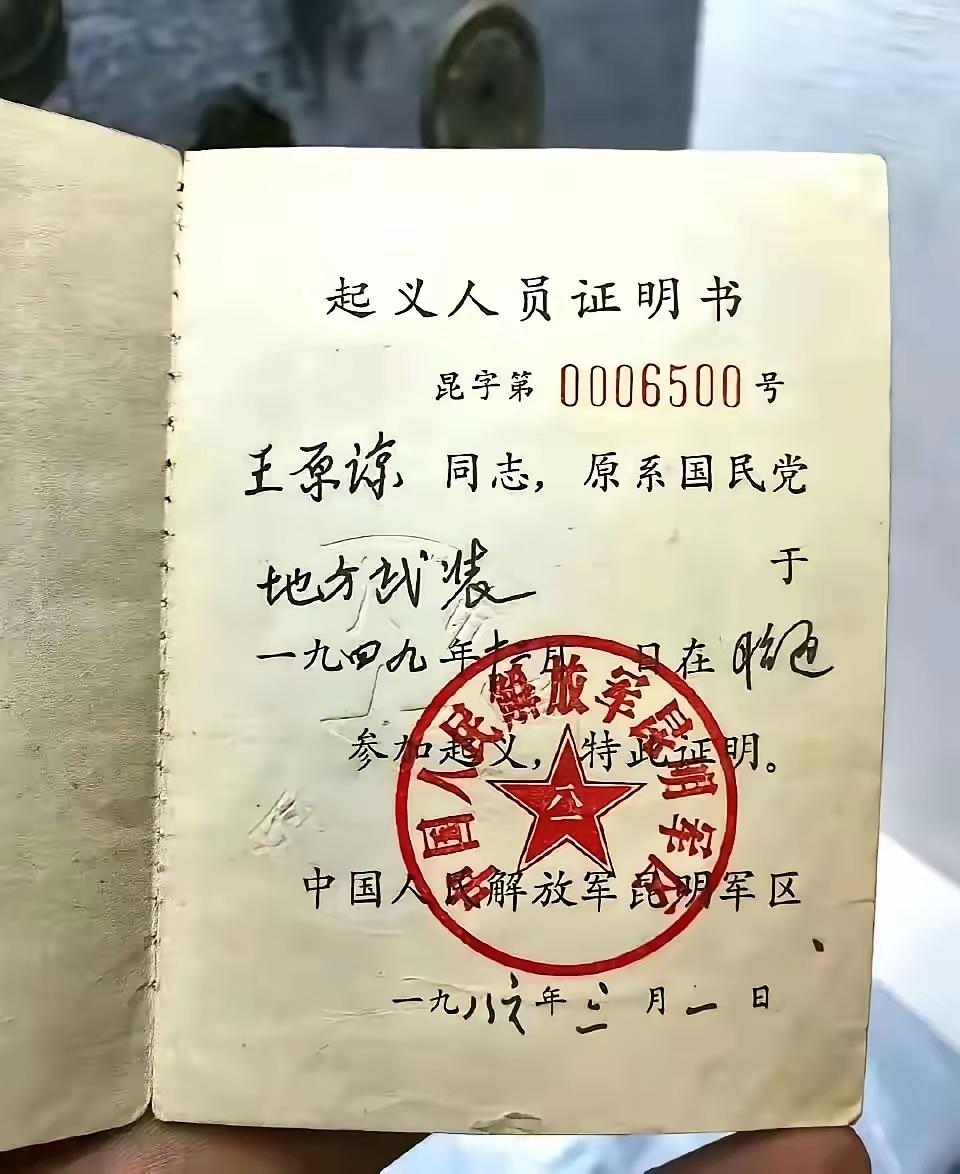 起义人员证明书
昆字第 0006500 号
王原谅 同志，原系国民党
地方武装 于
一九四九年十二月 日在昭通
参加起义，特此证明。
中国人民解放军昆明军区
一九八六年三月一日
中国人民解放军昆明军区
八一